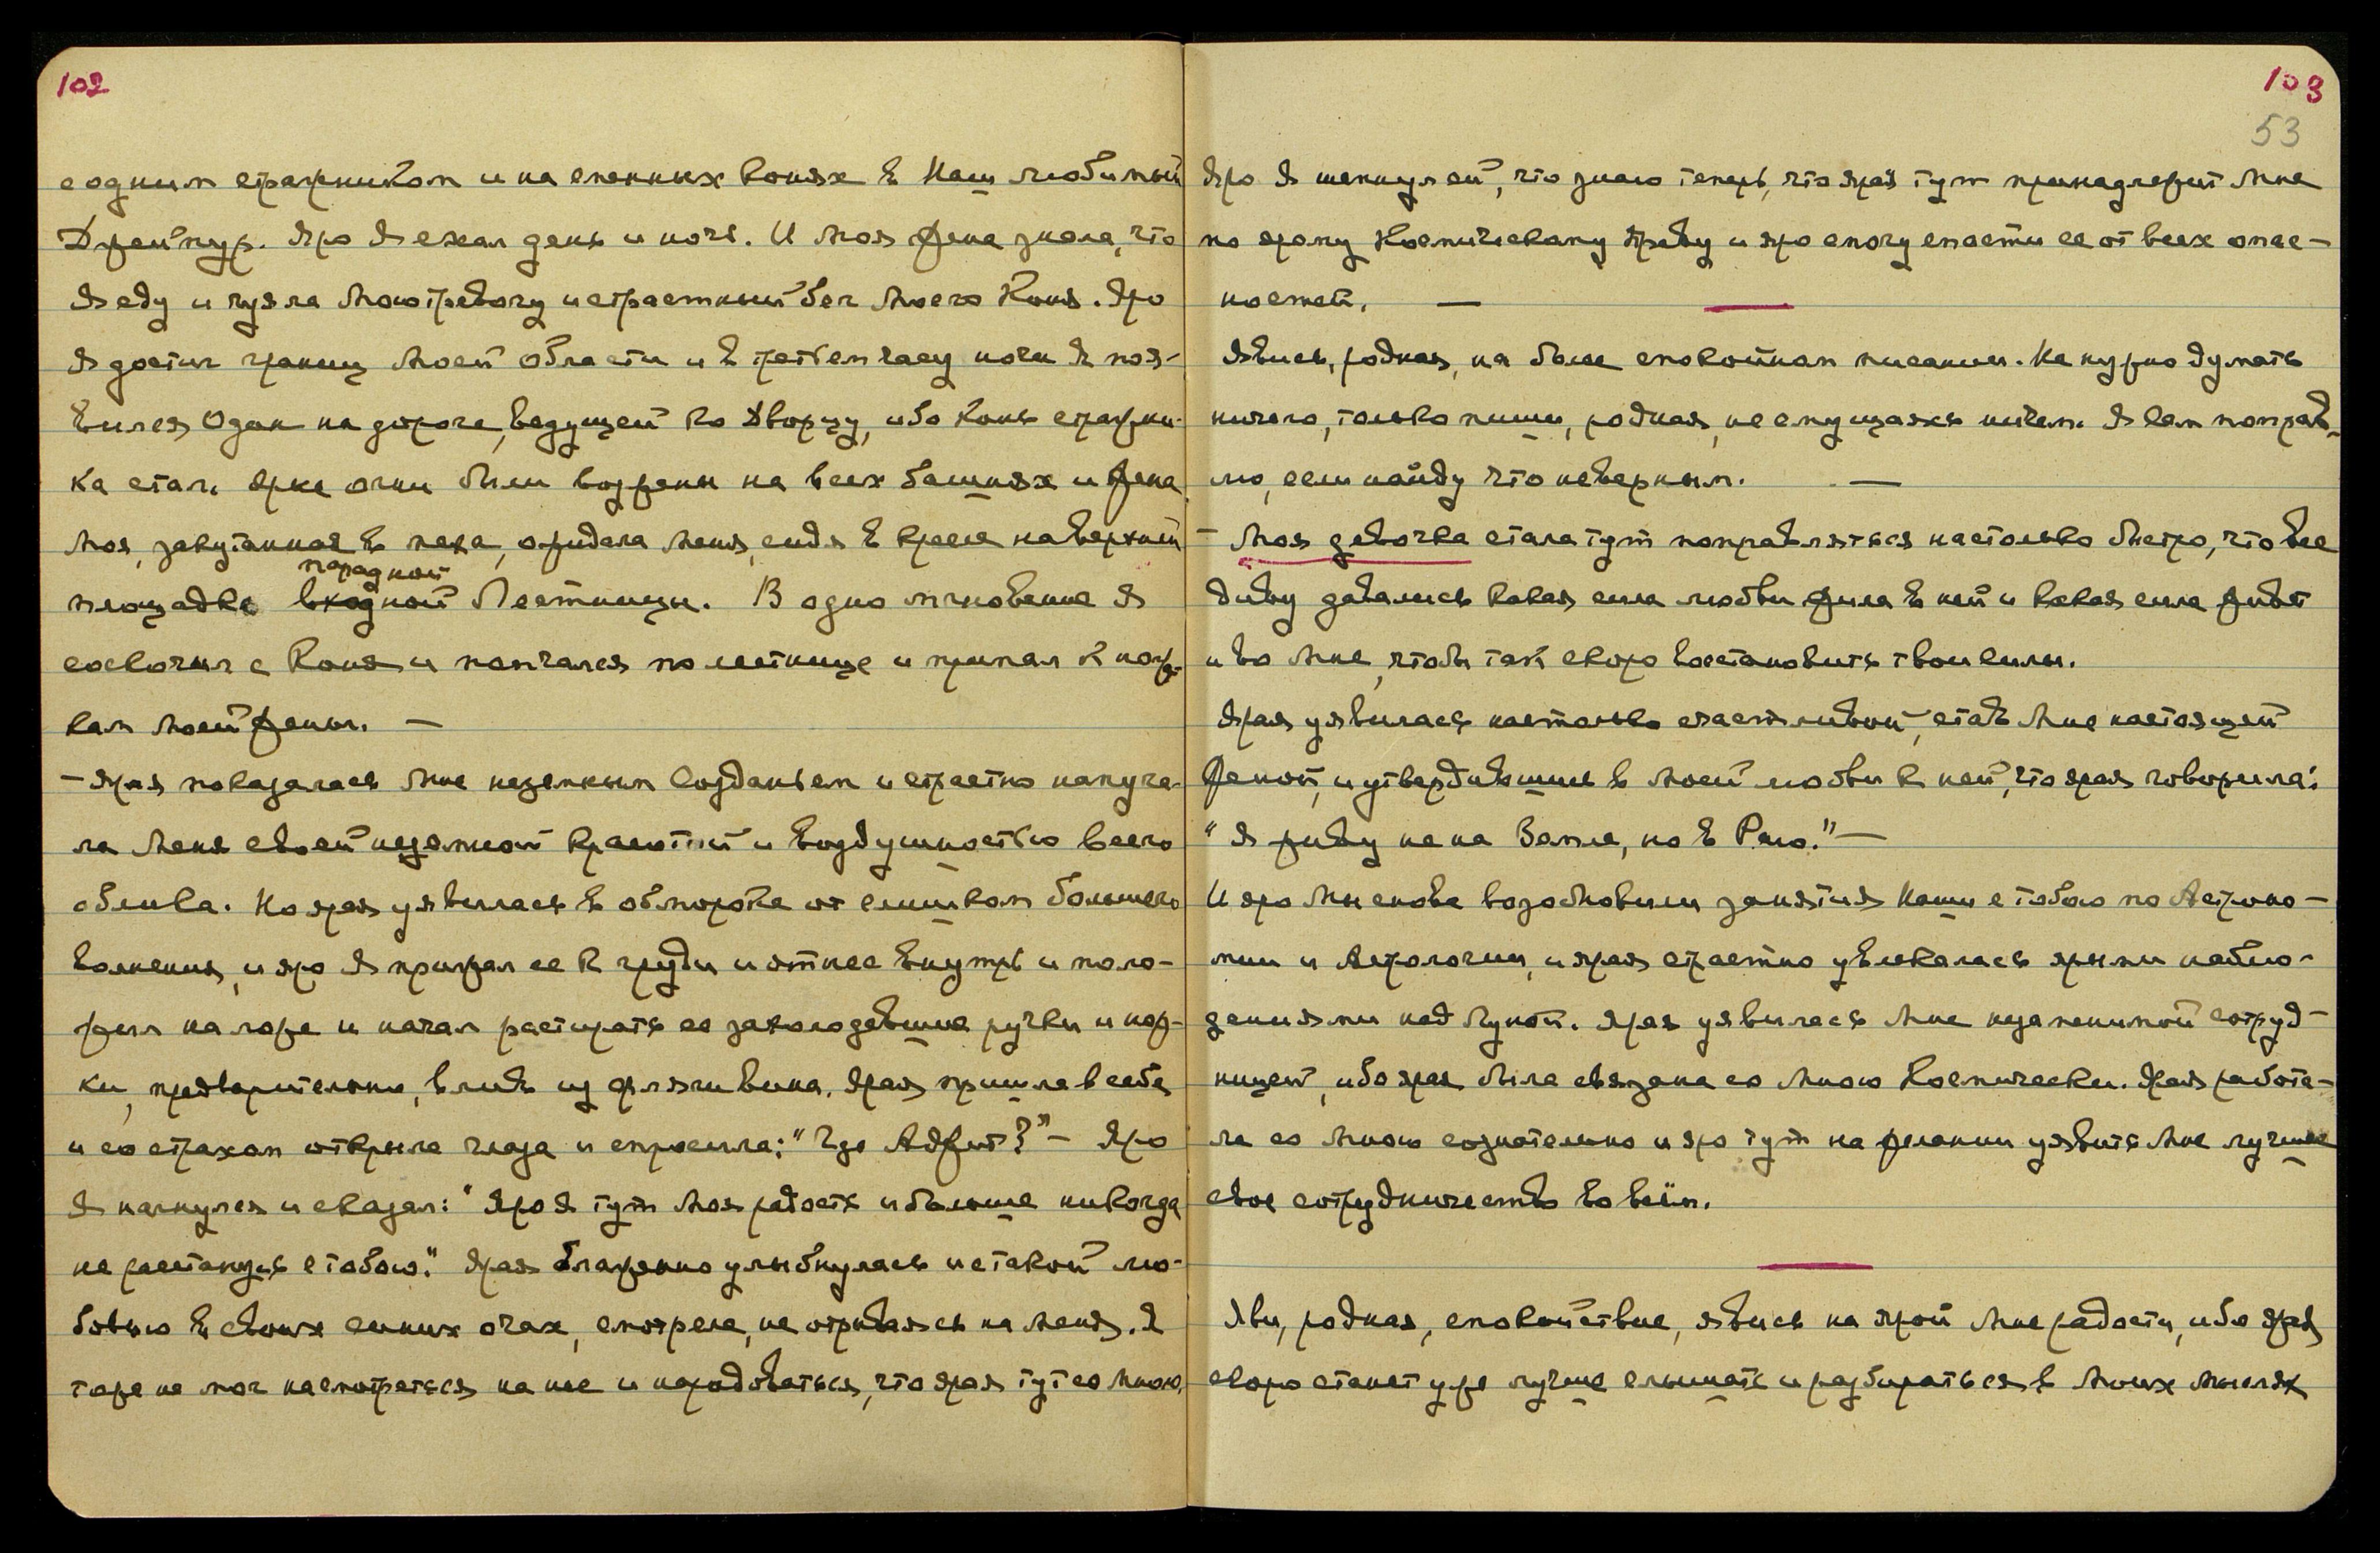 102
с одним стражником и на сменных конях в Наш любимый
Джейпур. Яро Я ехал день и ночь. И Моя Жена знала, что
Я еду и чуяла Мою тревогу и страстный бег Моего Коня. Яро
Я достиг границ Моей Области и в третьем часу ночи Я поя-
вился Один на дороге, ведущей ко Дворцу, ибо Конь стражни-
ка стал. Ярке огни были возжены на всех башнях и Жена
Моя, закутанная в меха, ожидала Меня, сидя в кресле на верхней
парадной
площадке входной Лестницы. В одно мгновение Я
соскочил с Коня и помчался по лестнице и припал к нож-
кам Моей Жены. —
— Ярая показалась Мне неземным созданьем и страстно напуга-
ла Меня своей неземной красотой и воздушностью всего
облика. Но ярая уявилась в обмороке от слишком большого
волнения, и яро Я прижал ее к груди и отнес внутрь и поло-
жил на ложе и начал растирать ее захолодевшие ручки и нож-
ки, предварительно, влив из фляги вина. Ярая пришла в себя
и со страхом открыла глаза и спросила: "Где Аджит?" — Яро
Я нагнулся и сказал: "Яро Я тут Моя радость и больше никогда
не расстанусь с тобою." Ярая блаженно улыбнулась и с такой лю-
бовью в своих синих очах, смотрела, не отрываясь на Меня. Я
тоже не мог насмотреться на нее и нарадоваться, что ярая тут со Мною,
103
53
Яро Я шепнул ей, что знаю теперь, что ярая тут принадлежит Мне
по ярому Космическому Праву и яро смогу спасти ее от всех опас-
ностей. —
Явись, родная, на более спокойном писании. Не нужно думать
ничего, только пиши, родная, не смущаясь ничем. Я Сам поправ-
лю, если найду что неверным. —
— Моя девочка стала тут поправляться настолько быстро, что все
диву давались какая сила любви жила в ней и какая сила живет
и во Мне, чтобы так скоро восстановить твои силы.
Ярая уявилась настолько счастливой, став Мне настоящей
Женой, и утвердившись в Моей любви к ней, что ярая говорила:
"Я живу не на Земле, но в Раю." —
И яро Мы снова возобновили занятия Наши с тобою по Астроно-
мии и Астрологии, и ярая страстно увлекалась ярыми наблю-
дениями над Луной. Ярая уявилась Мне незаменимой сотруд-
ницей, ибо ярая была связана со Мною Космически. Ярая работа-
ла со Мною сознательно и яро тут на желании уявить Мне лучшее
свое сотрудничество во всём.
Яви, родная, спокойствие, явись на ярой Мне радости, ибо ярая
скоро станет уже лучше слышать и разбираться в Моих Мыслях